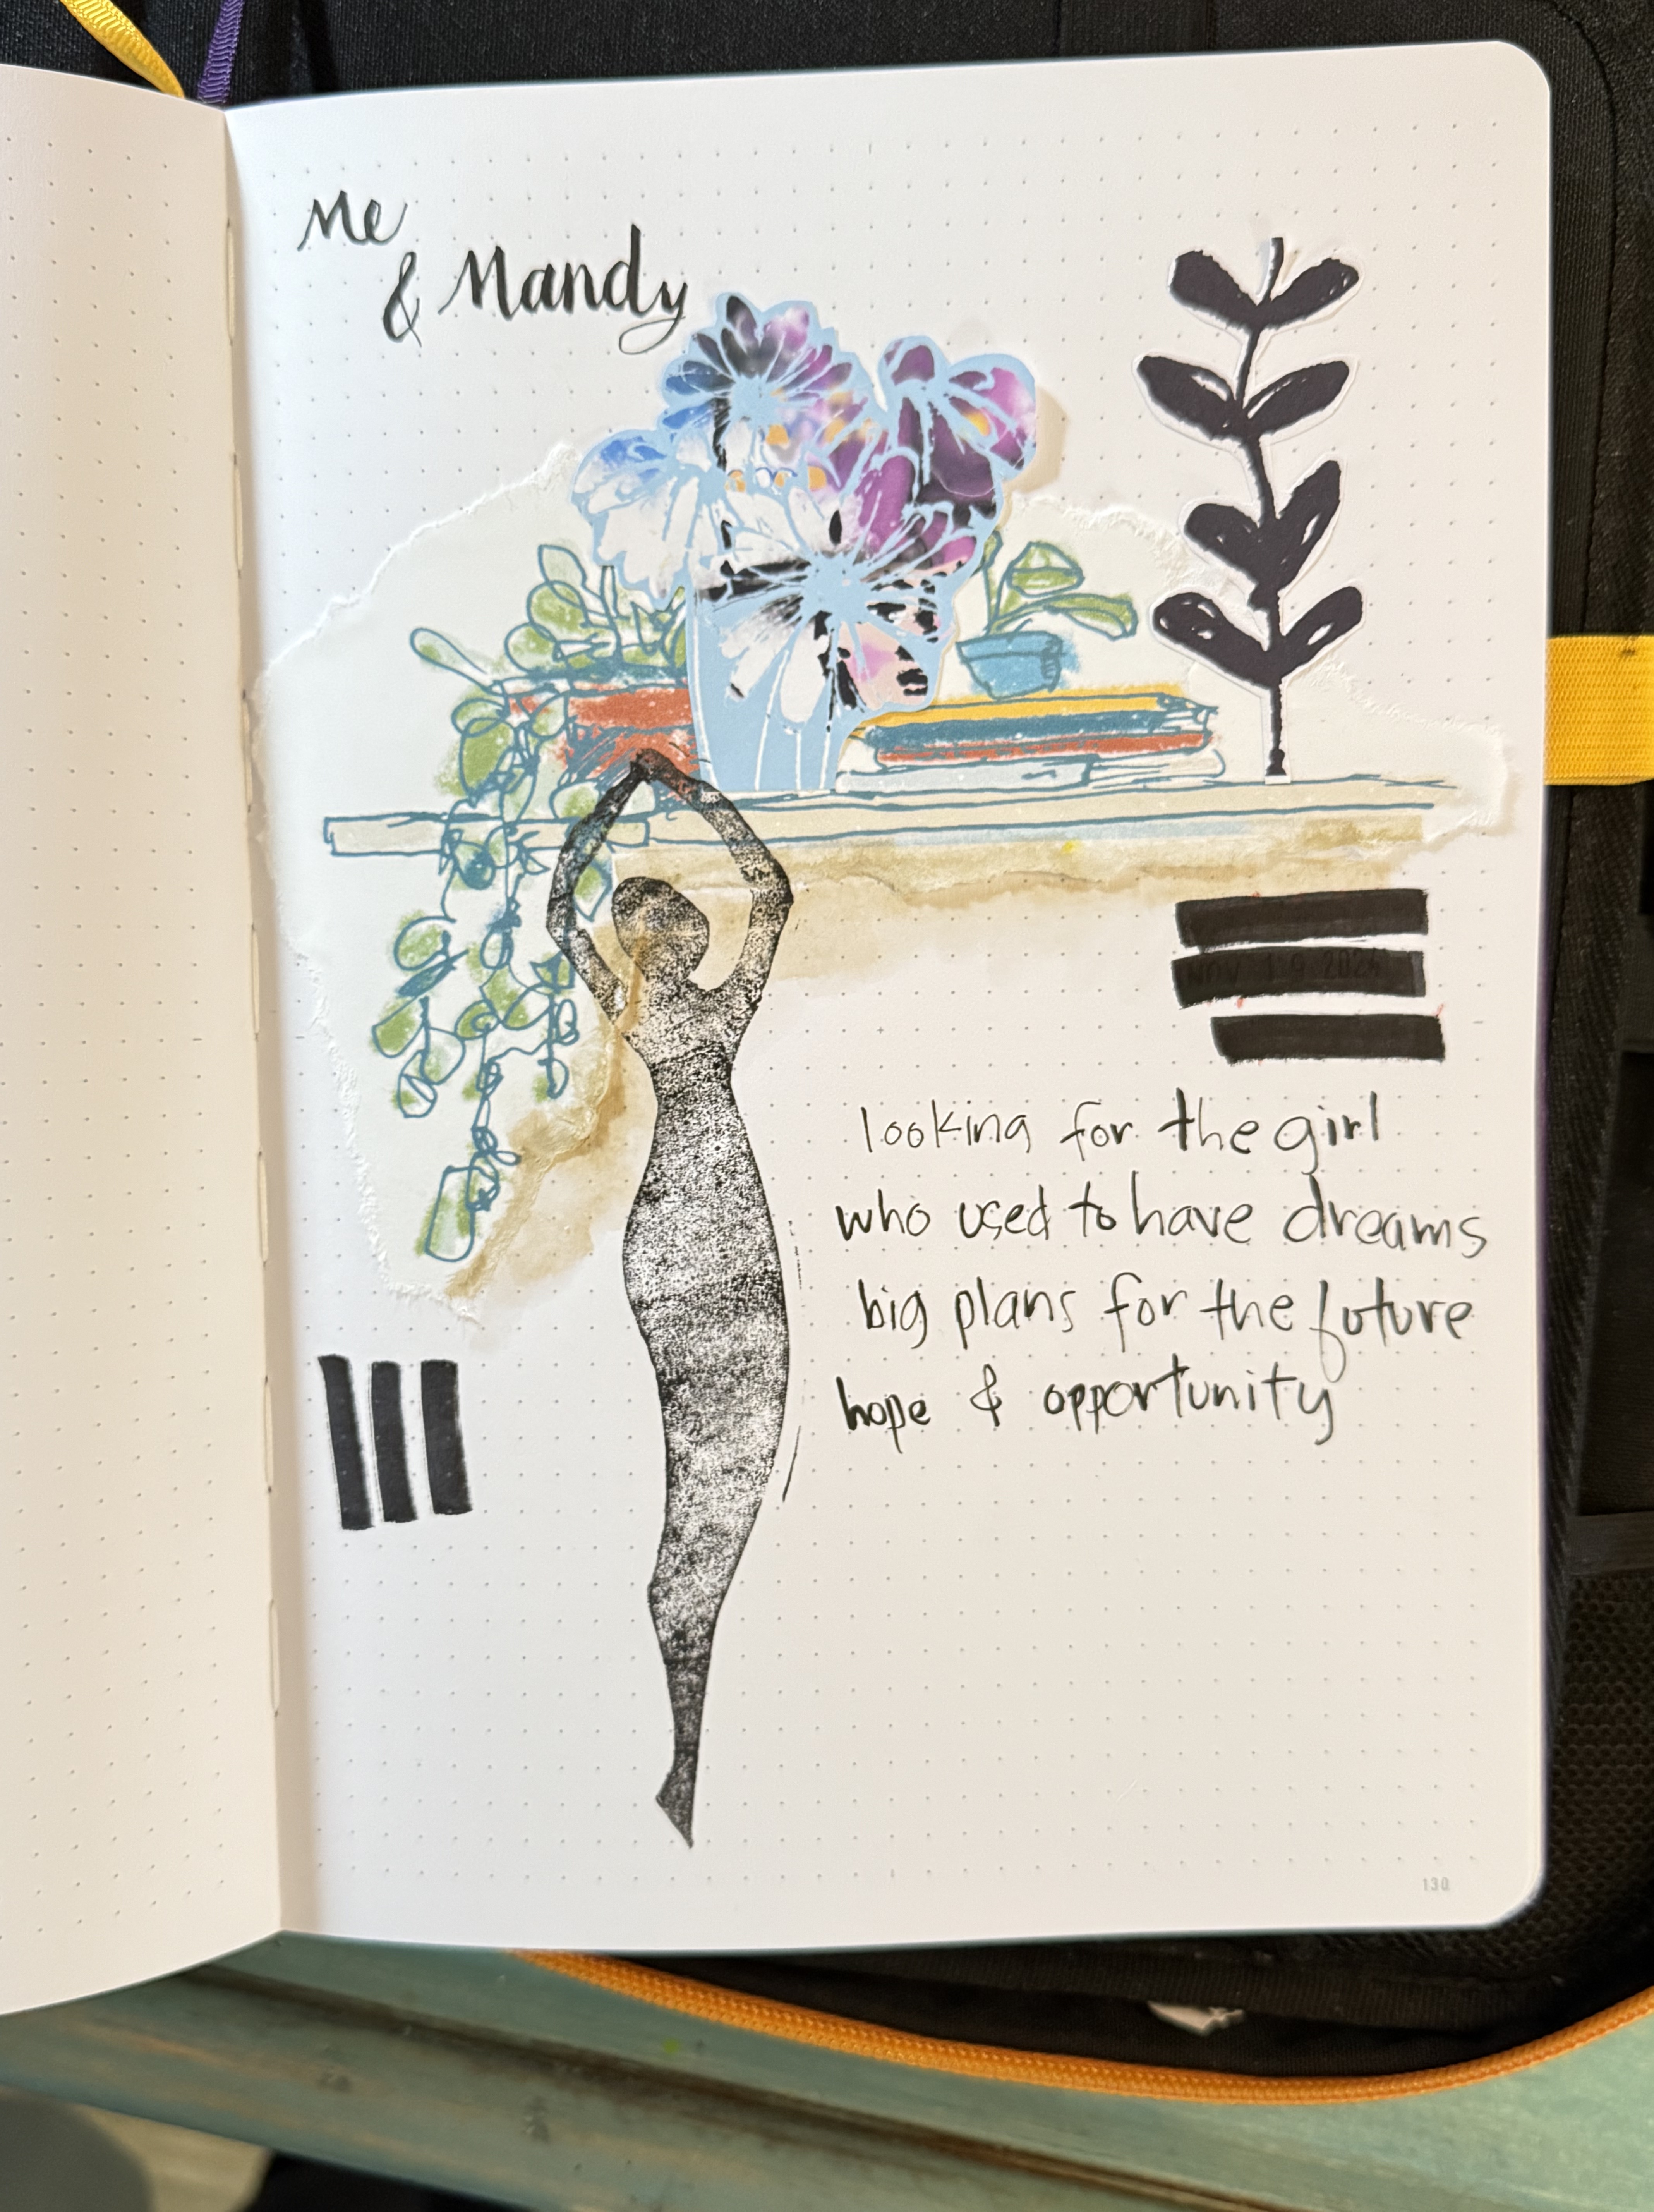 Me
& Mandy
NOV 19 2024
looking for the girl
who used to have dreams
big plans for the future
hope & opportunity
130